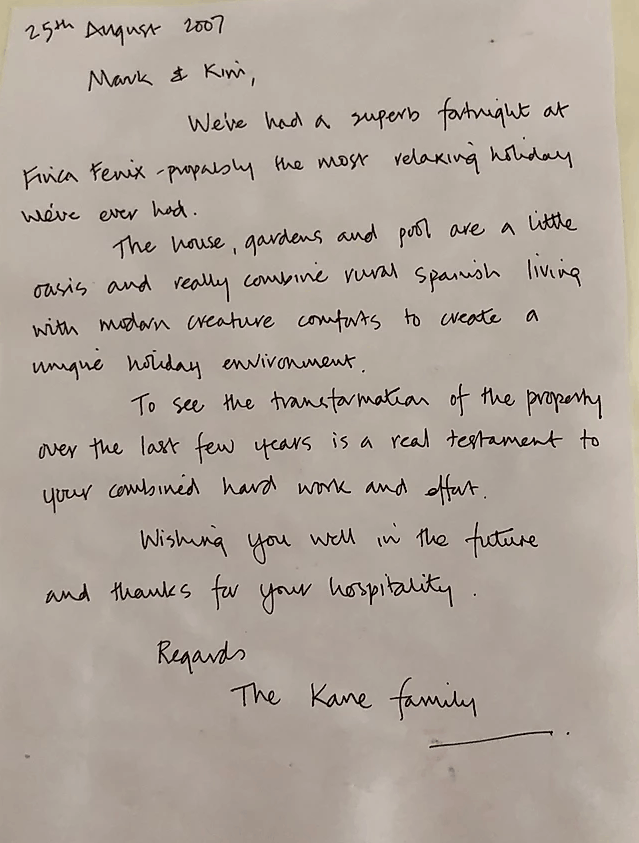 25th August 2007
Mark & Kim,
We've had a superb fortnight at
Finca Fenix - propably the most relaxing holiday
we've ever had.
The house, gardens and pool are a little
oasis and really combine rural Spanish living
with modern creature comforts to create a
unique holiday environment.
To see the transformation of the property
over the last few years is a real testament to
your combined hard work and effort.
Wishing you well in the future
and thanks for your hospitality.
Regards
The Kane family